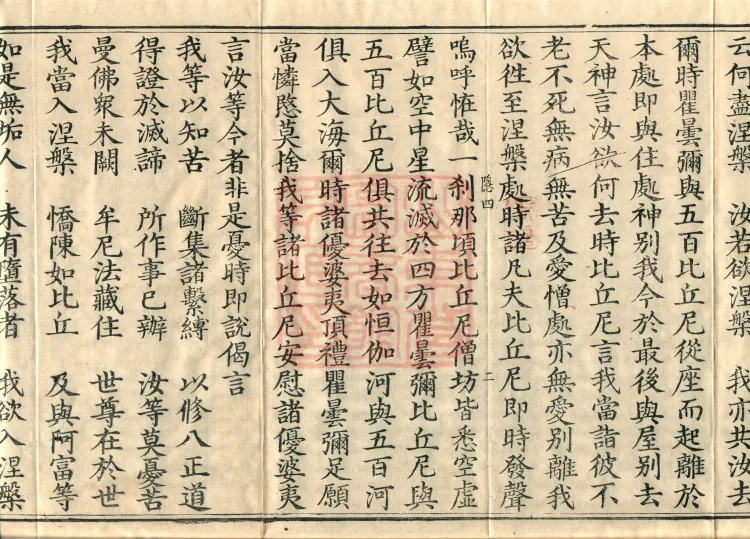 云何盡涅槃　汝若欲涅槃　我亦共汝去
爾時瞿曇彌與五百比丘尼從座而起離於
本處即與住處神別我今於最後與屋別去
天神言汝欲何去時比丘尼言我當詣彼不
老不死無病無苦及愛憎處亦無愛別離我
欲徃至涅槃處時諸凡夫比丘尼即時發聲
隱四　二
嗚呼恠哉一剎那頃比丘尼僧坊皆悉空虛
譬如空中星流滅於四方瞿曇彌比丘尼與
五百比丘尼俱共往去如恒伽河與五百河
俱入大海爾時諸優婆夷頂禮瞿曇彌足願
當憐愍莫捨我等諸比丘尼安慰諸優婆夷
言汝等今者非是憂時即說偈言
我等以知苦　斷集諸繫縛　以修八正道
得證於滅諦　所作事已辦　汝等莫憂苦
曼佛衆未闕　牟尼法藏住　世尊在於世
我當入涅槃　憍陳如比丘　及與阿富等
如是無垢人　未有墮落者　我欲入涅槃